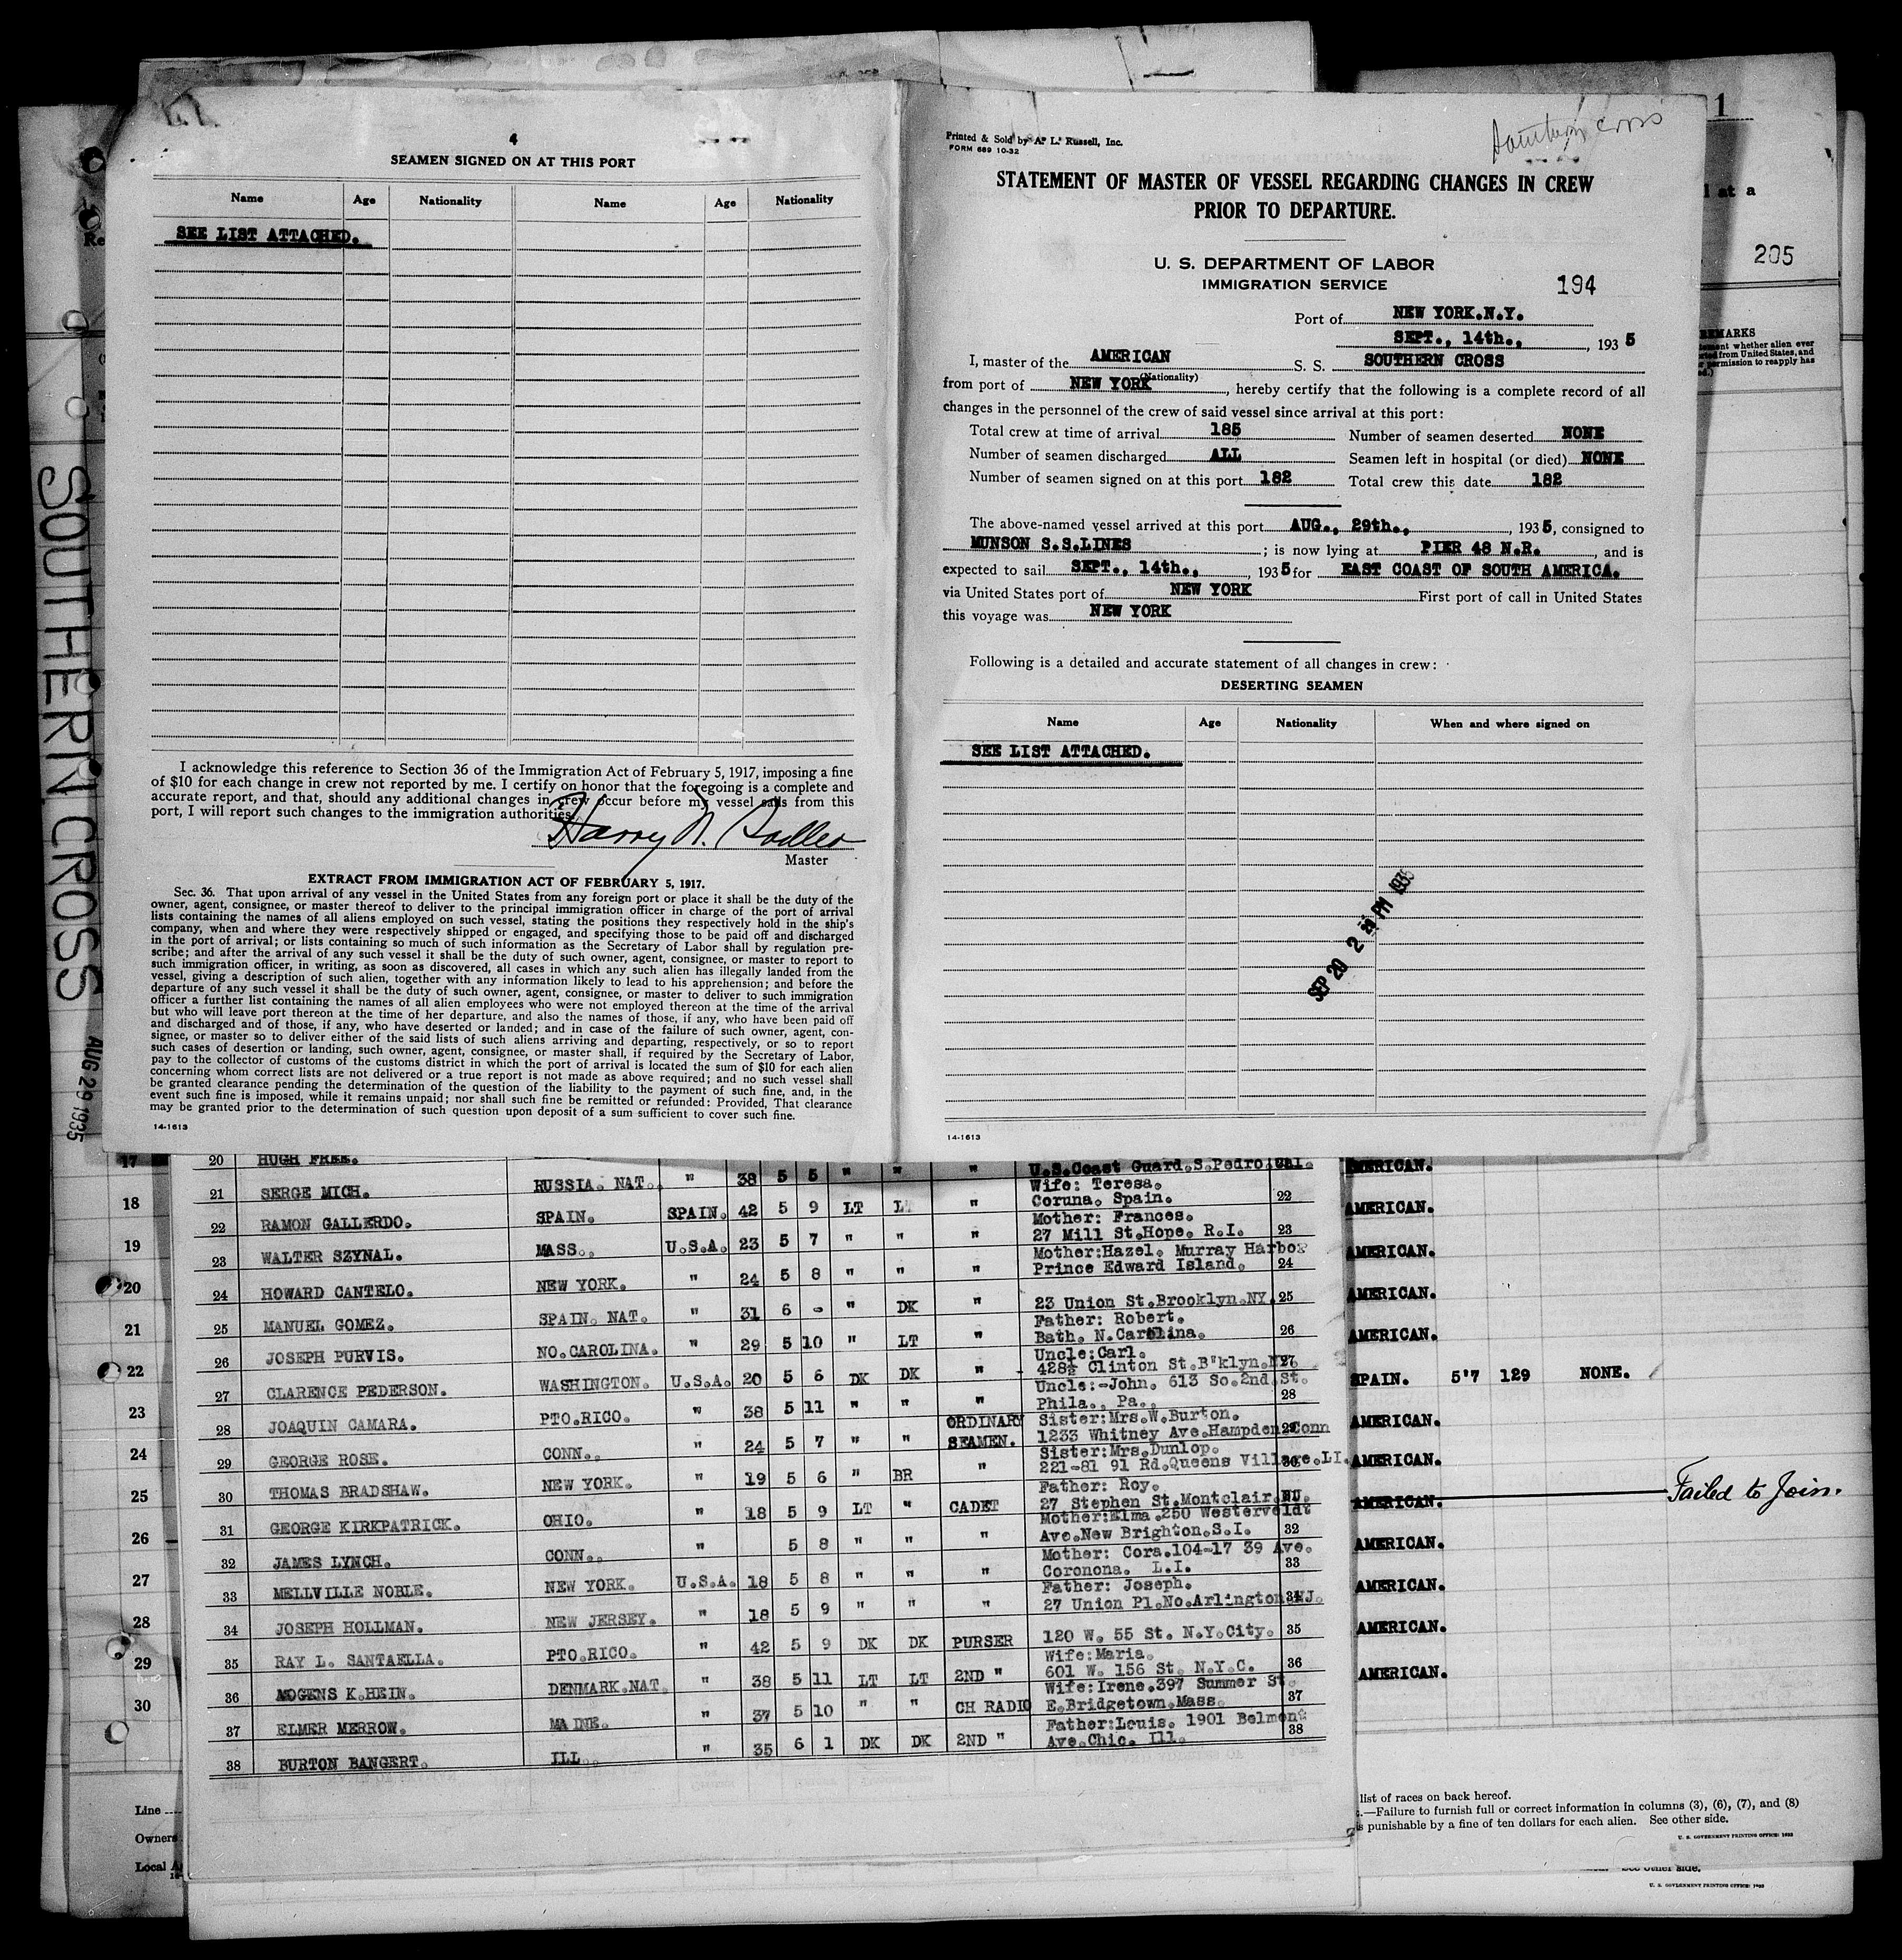 4
SEAMEN SIGNED ON AT THIS PORT
Name Age Nationality Name Age Nationality
SEE LIST ATTACHED.
I acknowledge this reference to Section 36 of the Immigration Act of February 5, 1917, imposing a fine
of $10 for each change in crew not reported by me. I certify on honor that the foregoing is a complete and
accurate report, and that, should any additional changes in crew occur before my vessel sails from this
port, I will report such changes to the immigration authorities.
Harry N. Sadler
Master
EXTRACT FROM IMMIGRATION ACT OF FEBRUARY 5, 1917.
Sec. 36. That upon arrival of any vessel in the United States from any foreign port or place it shall be the duty of the
owner, agent, consignee, or master thereof to deliver to the principal immigration officer in charge of the port of arrival
lists containing the names of all aliens employed on such vessel, stating the positions they respectively hold in the ship's
company, when and where they were respectively shipped or engaged, and specifying those to be paid off and discharged
in the port of arrival; or lists containing so much of such information as the Secretary of Labor shall by regulation pre-
scribe; and after the arrival of any such vessel it shall be the duty of such owner, agent, consignee, or master to report to
such immigration officer, in writing, as soon as discovered, all cases in which any such alien has illegally landed from the
vessel, giving a description of such alien, together with any information likely to lead to his apprehension; and before the
departure of any such vessel it shall be the duty of such owner, agent, consignee, or master to deliver to such immigration
officer a further list containing the names of all alien employees who were not employed thereon at the time of the arrival
but who will leave port thereon at the time of her departure, and also the names of those, if any, who have been paid off
and discharged and of those, if any, who have deserted or landed; and in case of the failure of such owner, agent, con-
signee, or master so to deliver either of the said lists of such aliens arriving and departing, respectively, or so to report
such cases of desertion or landing, such owner, agent, consignee, or master shall, if required by the Secretary of Labor,
pay to the collector of customs of the customs district in which the port of arrival is located the sum of $10 for each alien
concerning whom correct lists are not delivered or a true report is not made as above required; and no such vessel shall
be granted clearance pending the determination of the question of the liability to the payment of such fine, and, in the
event such fine is imposed, while it remains unpaid; nor shall such fine be remitted or refunded: Provided, That clearance
may be granted prior to the determination of such question upon deposit of a sum sufficient to cover such fine.
14-1613
Printed & Sold by A. L. Russell, Inc.
FORM 689 10-32
Southern Cross
STATEMENT OF MASTER OF VESSEL REGARDING CHANGES IN CREW
PRIOR TO DEPARTURE.
U. S. DEPARTMENT OF LABOR
IMMIGRATION SERVICE
194
Port of NEW YORK.N.Y.
SEPT., 14th., 1935
I, master of the AMERICAN S. S. SOUTHERN CROSS
(Nationality)
from port of NEW YORK, hereby certify that the following is a complete record of all
changes in the personnel of the crew of said vessel since arrival at this port:
Total crew at time of arrival 185 Number of seamen deserted NONE
Number of seamen discharged ALL Seamen left in hospital (or died) NONE
Number of seamen signed on at this port 182 Total crew this date 182
The above-named vessel arrived at this port AUG., 29th., 1935, consigned to
MUNSON S.S.LINES; is now lying at PIER 48 N.R., and is
expected to sail SEPT., 14th., 1935 for EAST COAST OF SOUTH AMERICA.
via United States port of NEW YORK First port of call in United States
this voyage was NEW YORK
Following is a detailed and accurate statement of all changes in crew:
DESERTING SEAMEN
Name Age Nationality When and where signed on
SEE LIST ATTACHED.
SEP 20 2 PM 1935
14-1613
SOUTHERN CROSS AUG 29 1935
1
l at a
205
REMARKS
ment whether alien ever
from United States, and
permission to reapply has
20 HUGH FREE. U.S.Coast Guard.S.Pedro.Cal.
21 SERGE MICH. RUSSIA. NAT. " 38 5 5 " " " Wife: Teresa.
Coruna. Spain. 22
22 RAMON GALLERDO. SPAIN. SPAIN. 42 5 9 LT LT " Mother: Frances.
27 Mill St.Hope. R.I. 23
23 WALTER SZYNAL. MASS.. U.S.A. 23 5 7 " " " Mother:Hazel. Murray Harbor
Prince Edward Island. 24
24 HOWARD CANTELO. NEW YORK. " 24 5 8 " " "
23 Union St.Brooklyn.NY. 25
25 MANUEL GOMEZ. SPAIN. NAT. " 31 6 - " DK " Father: Robert.
Bath. N.Carolina. 26
26 JOSEPH PURVIS. NO.CAROLINA. " 29 5 10 " LT " Uncle:Carl.
428½ Clinton St.B'klyn.NY. 27
27 CLARENCE PEDERSON. WASHINGTON. U.S.A. 20 5 6 DK DK " Uncle:-John. 613 So.2nd.St.
Phila., Pa., 28
28 JOAQUIN CAMARA. PTO.RICO. " 38 5 11 " " " Sister:Mrs.W.Burton.
ORDINARY SEAMEN. 1233 Whitney Ave.Hampden.Conn 29
29 GEORGE ROSE. CONN.. " 24 5 7 " " Sister:Mrs.Dunlop.
221-81 91 Rd.Queens Village.LI. 30
30 THOMAS BRADSHAW. NEW YORK. " 19 5 6 " BR " Father: Roy.
27 Stephen St.Montclair.NJ.
31 GEORGE KIRKPATRICK. OHIO. " 18 5 9 LT " CADET Mother:Elma.250 Westerveldt
Ave.New Brighton.S.I. 32
32 JAMES LYNCH. CONN.. " 5 8 " " " Mother: Cora.104-17 39 Ave.
Coronona. L.I. 33
33 MELLVILLE NOBLE. NEW YORK. U.S.A. 18 5 8 " " " Father: Joseph.
27 Union Pl.No.Arlington.NJ. 34
34 JOSEPH HOLLMAN. NEW JERSEY. " 18 5 9 " " "
120 W. 55 St. N.Y.City. 35
35 RAY L. SANTAELLA. PTO.RICO. " 42 5 9 DK DK PURSER Wife:Maria.
601 W. 156 St. N.Y.C. 36
36 MOGENS K.HEIN. DENMARK.NAT. " 38 5 11 LT LT 2ND " Wife:Irene.397 Summer St.
E.Bridgetown.Mass. 37
37 ELMER MERROW. MAINE. " 37 5 10 " " CH RADIO Father:Louis. 1901 Belmont
Ave.Chic. Ill. 38
38 BURTON BANGERT. ILL.. " 35 6 1 DK DK 2ND "
17 AMERICAN.
18 AMERICAN.
19 AMERICAN.
20 AMERICAN.
21 AMERICAN.
22 SPAIN. 5'7 129 NONE.
23 AMERICAN.
24 AMERICAN.
25 AMERICAN. Failed to Join.
26 AMERICAN.
27 AMERICAN.
28 AMERICAN.
29 AMERICAN.
30
Line
Owners
Local
list of races on back hereof.
—Failure to furnish full or correct information in columns (3), (6), (7), and (8)
is punishable by a fine of ten dollars for each alien. See other side.
U. S. GOVERNMENT PRINTING OFFICE: 1932
See other side.
U. S. GOVERNMENT PRINTING OFFICE: 1932